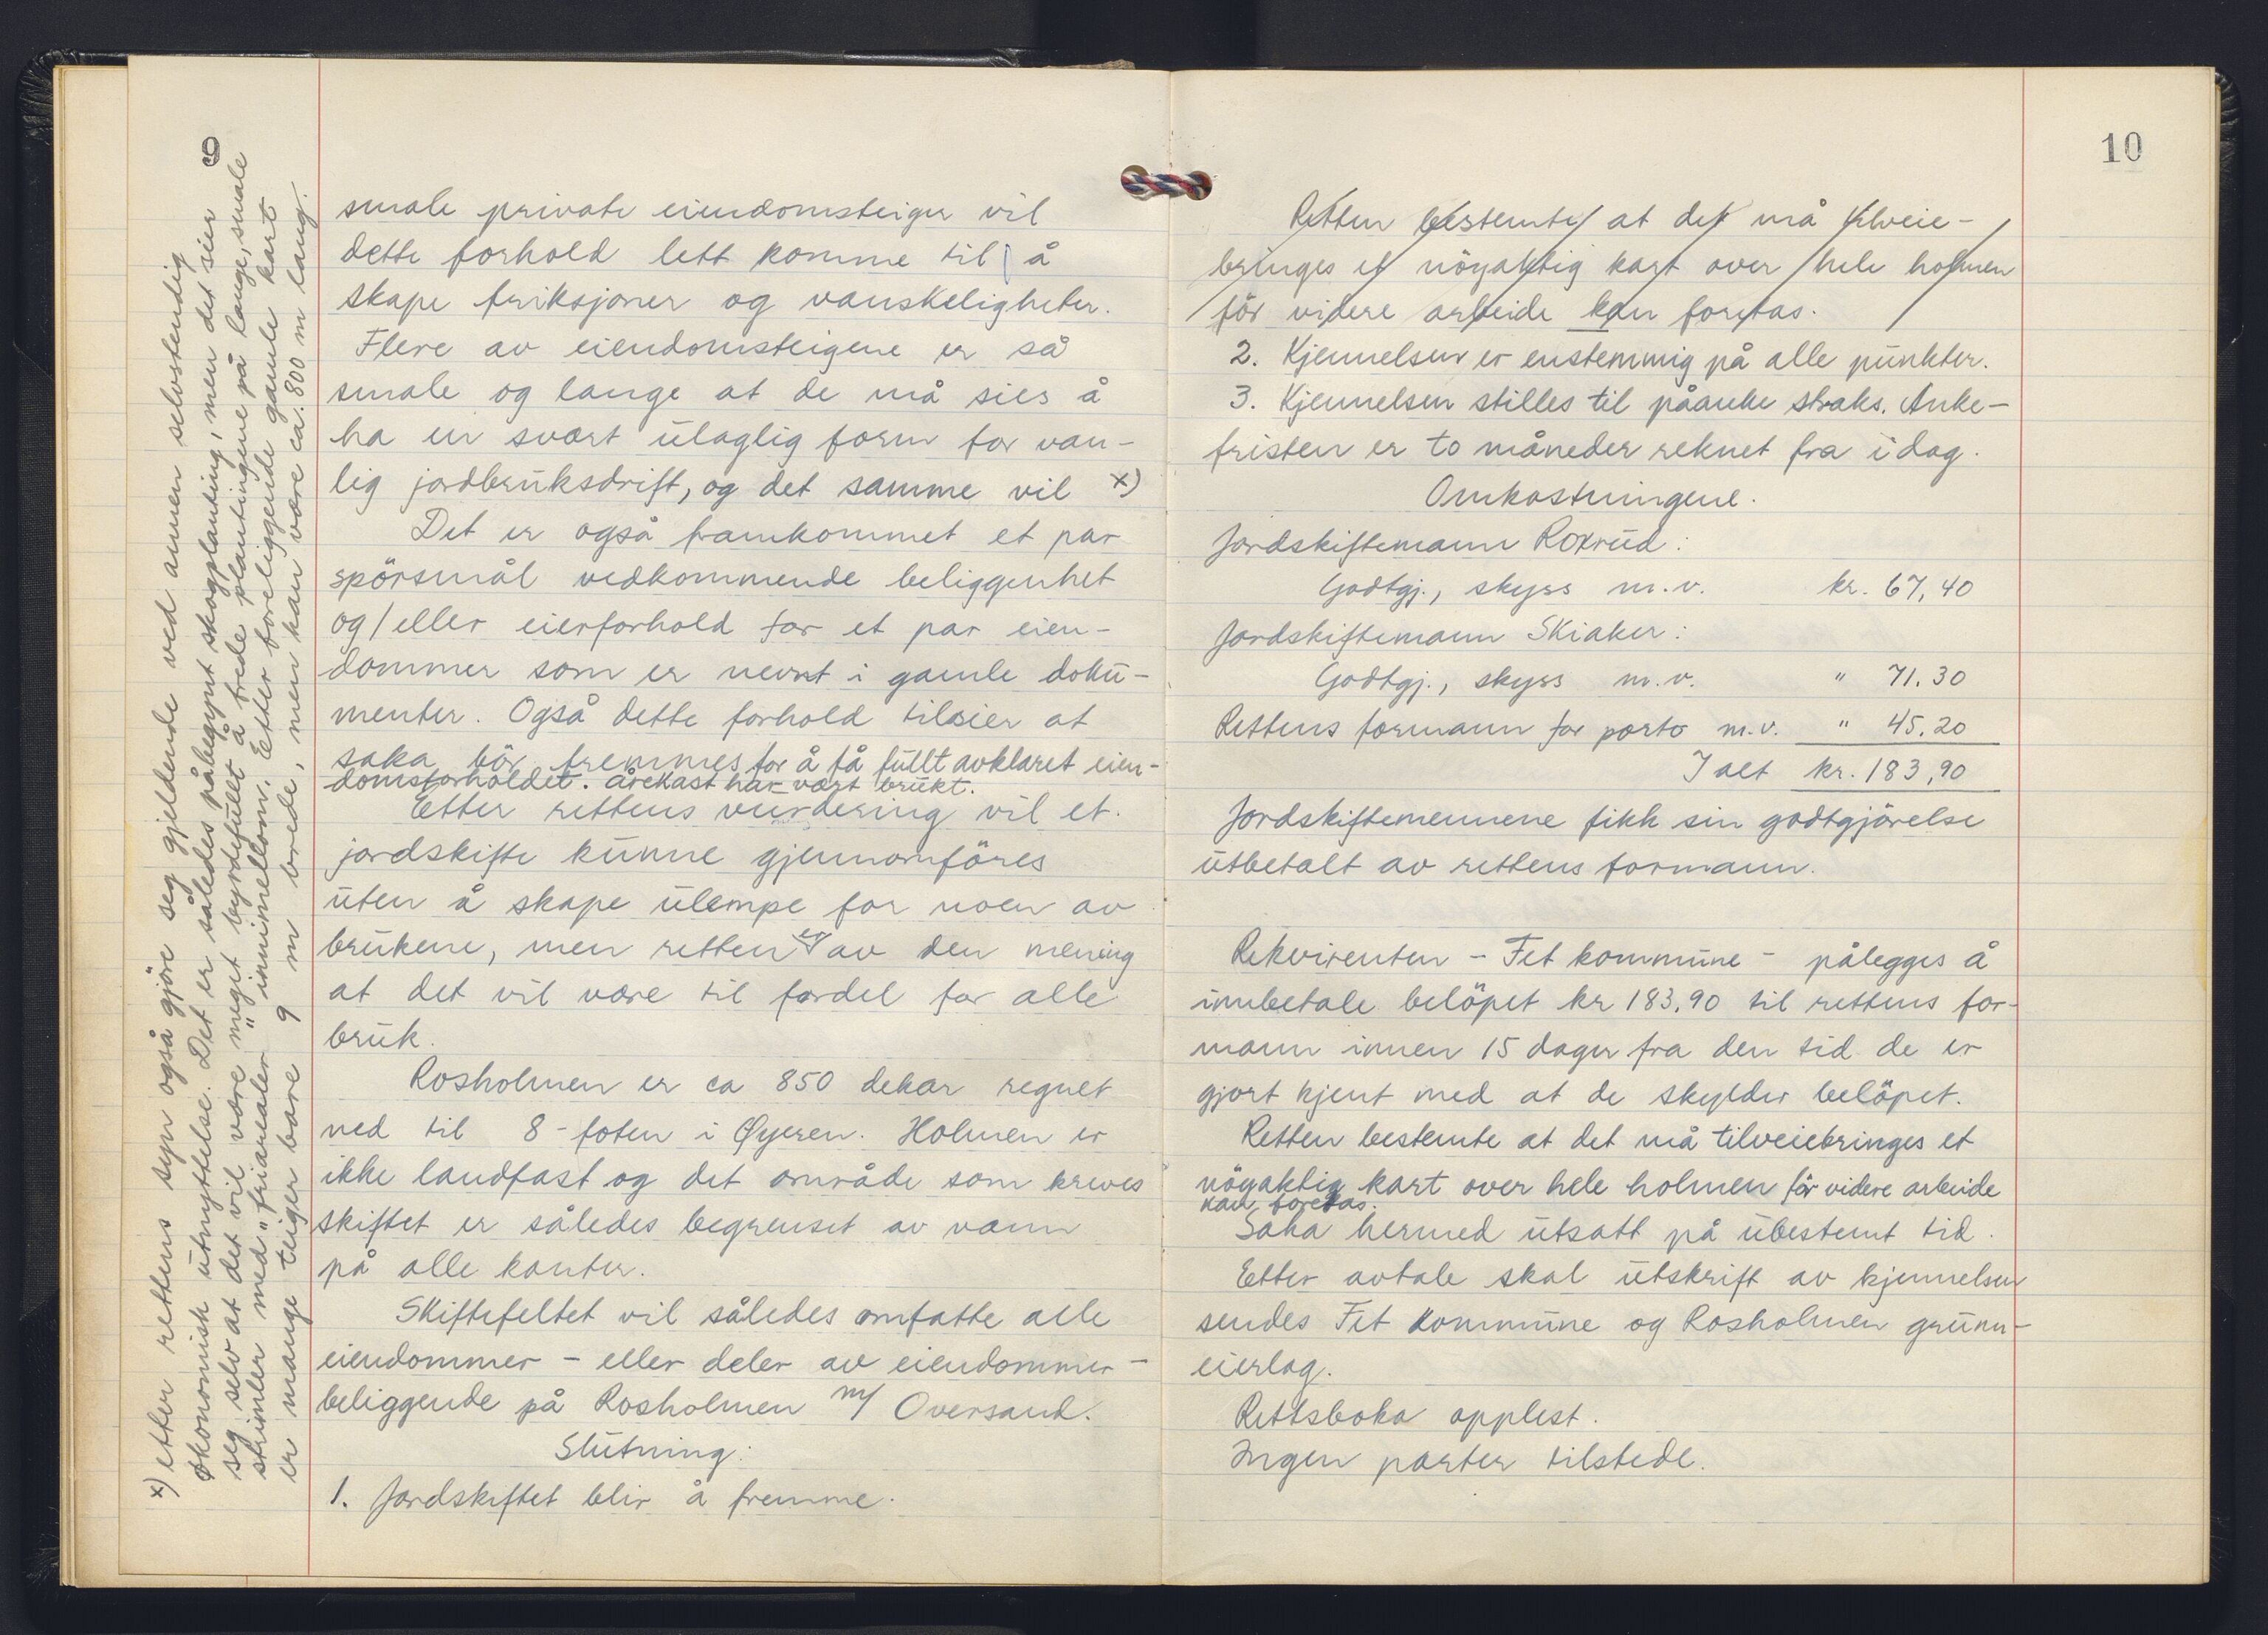 9
smale private eiendomsteiger vil
dette forhold lett komme til å
skape friksjoner og vanskeligheter.
Flere av eiendomsteigene er så
smale og lange at de må sies å
ha en svært ulaglig form for van-
lig jordbruksdrift, og det samme vil x)
Det er også framkommet et par
spörsmål vedkommende beliggenhet
og/eller eierforhold for et par eien-
dommer som er nevnt i gamle doku-
menter. Også dette forhold tilsier at
saka bör fremmes for å få fullt avklaret eien-
domsforholdet. årekast har vært brukt.
Etter rettens vurdering vil et
jordskifte kunne gjennomföres
uten å skape ulempe for noen av
brukene, men retten er av den mening
at det vil være til fordel for alle
bruk.
Rosholmen er ca 850 dekar regnet
ned til 8-foten i Øyeren. Holmen er
ikke landfast og det område som kreves
skiftet er således begrenset av vann
på alle kanter.
Skiftefeltet vil således omfatte alle
eiendommer - eller deler av eiendommer -
beliggende på Rosholmen m/ Oversand.
Slutning:
1. Jordskiftet blir å fremme.
x) etter rettens syn også gjöre seg gjeldende ved annen selvstendig
økonomisk utnyttelse. Det er således påbegynt skogplanting, men det sier
seg selv at det vil være meget byrdefullt å frede plantingene på lange, smale
strimler med "friarealer" innimellom. Etter foreliggende gamle kart
er mange teiger bare 9 m brede, men kan være ca. 800 m lang.
10
Retten bestemte at det må tilveie-
bringes et nöyaktig kart over hele holmen
för videre arbeide kan foretas.
2. Kjennelsen er enstemmig på alle punkter.
3. Kjennelsen stilles til påanke straks. Anke-
fristen er to måneder reknet fra idag.
Omkostningene.
Jordskiftemann Roxrud:
Godtgj., skyss m.v. kr. 67,40
Jordskiftemann Skiaker:
Godtgj., skyss m.v. " 71.30
Rettens formann for porto m.v. " 45.20
I alt kr. 183,90
Jordskiftemennene fikk sin godtgjörelse
utbetalt av rettens formann.
Rekvirenten - Fet kommune - pålegges å
innbetale belöpet kr 183,90 til rettens for-
mann innen 15 dager fra den tid de er
gjort kjent med at de skylder belöpet.
Retten bestemte at det må tilveiebringes et
nöyaktig kart over hele holmen för videre arbeide
kan foretas.
Saka hermed utsatt på ubestemt tid.
Etter avtale skal utskrift av kjennelsen
sendes Fet kommune og Rosholmen grunn-
eierlag.
Rettsboka opplest.
Ingen parter tilstede.